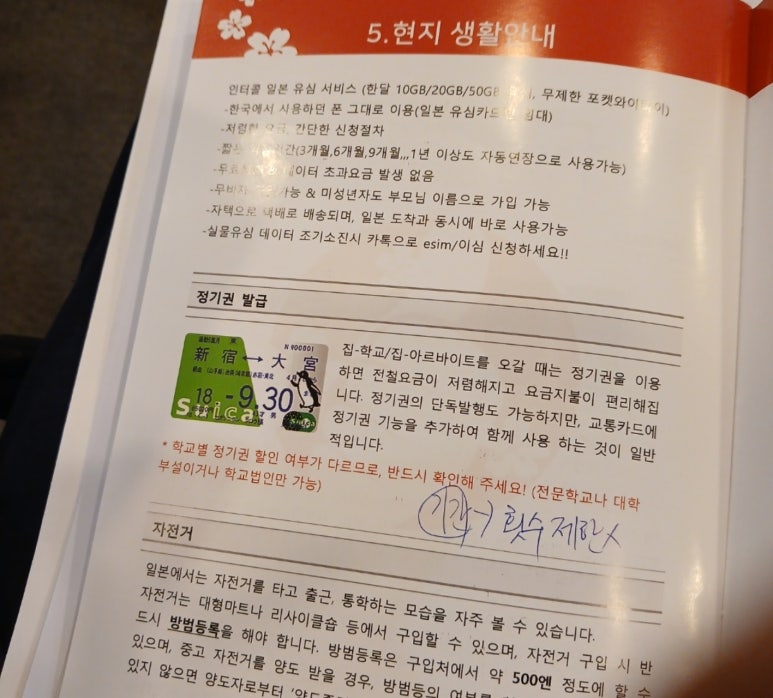 5.현지 생활안내
인터콜 일본 유심 서비스 (한달 10GB/20GB/50GB 무제한 포켓와이
-한국에서 사용하던 폰 그대로 이용(일본 유심카드 임대)
-저렴한 요금, 간단한 신청절차
기간(3개월,6개월,9개월,,,1년 이상도 자동연장으로 사용가능)
데이터 초과요금 발생 없음
가능 & 미성년자도 부모님 이름으로 가입 가능
-자택으로 택배로 배송되며, 일본 도착과 동시에 바로 사용가능
-실물유심 데이터 조기소진시 카톡으로 esim/이심 신청하세요!!
정기권 발급
N 900001
新宿↔大宮
18 -9.30
Suica
집-학교/집-아르바이트를 오갈 때는 정기권을 이용
하면 전철요금이 저렴해지고 요금지불이 편리해집
니다. 정기권의 단독발행도 가능하지만, 교통카드에
정기권 기능을 추가하여 함께 사용 하는 것이 일반
적입니다.
* 학교별 정기권 할인 여부가 다르므로, 반드시 확인해 주세요! (전문학교나 대학
부설이거나 학교법인만 가능)
기간→ 횟수 제한x
자전거
일본에서는 자전거를 타고 출근, 통학하는 모습을 자주 볼 수 있습니다.
자전거는 대형마트나 리사이클숍 등에서 구입할 수 있으며, 자전거 구입 시 반
드시 방범등록을 해야 합니다. 방범등록은 구입처에서 약 500엔 정도에 할 수
있으며, 중고 자전거를 양도 받을 경우, 방범등의 여부를
있지 않으면 양도자로부터